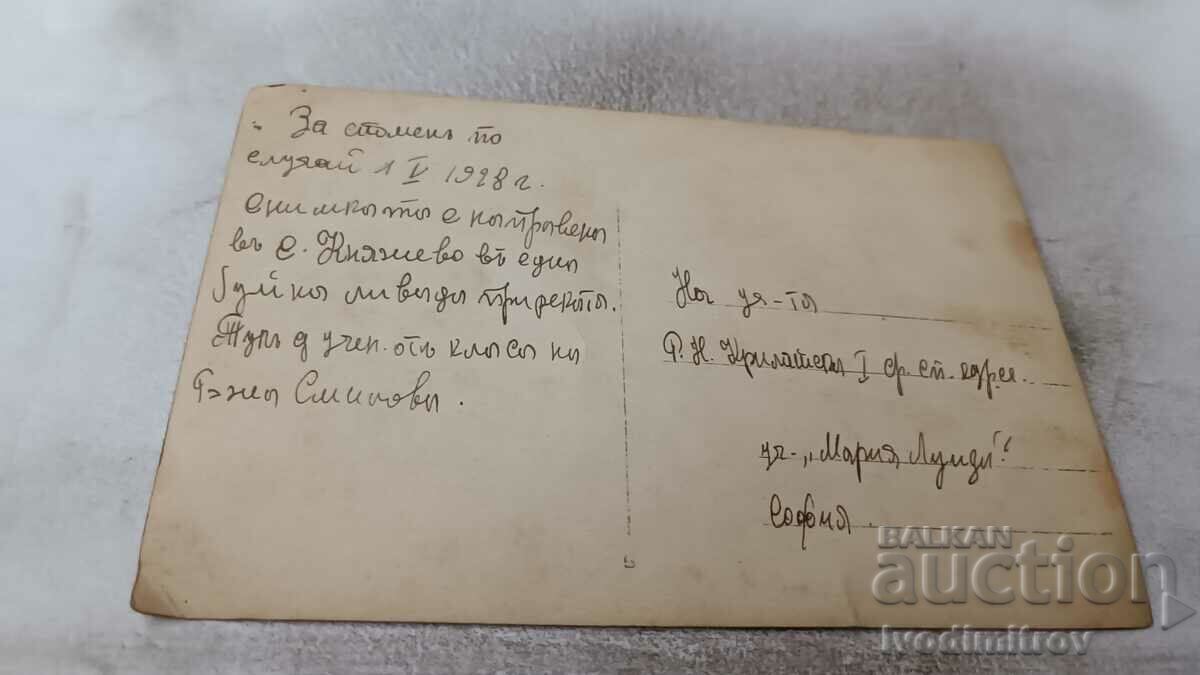 За споменъ по
случай 1 V 1928 г.
снимката е направена
въ с. Княжево въ една
гуйна ливада при реката.
Тукъ д учен. отъ класа на
Г-жа Смилова.
На уч-та
Р. Н. Крилатска I ср. сп. курс.
уч- „Мария Луиза“
София.
BALKAN
auction
Ivodimitrov